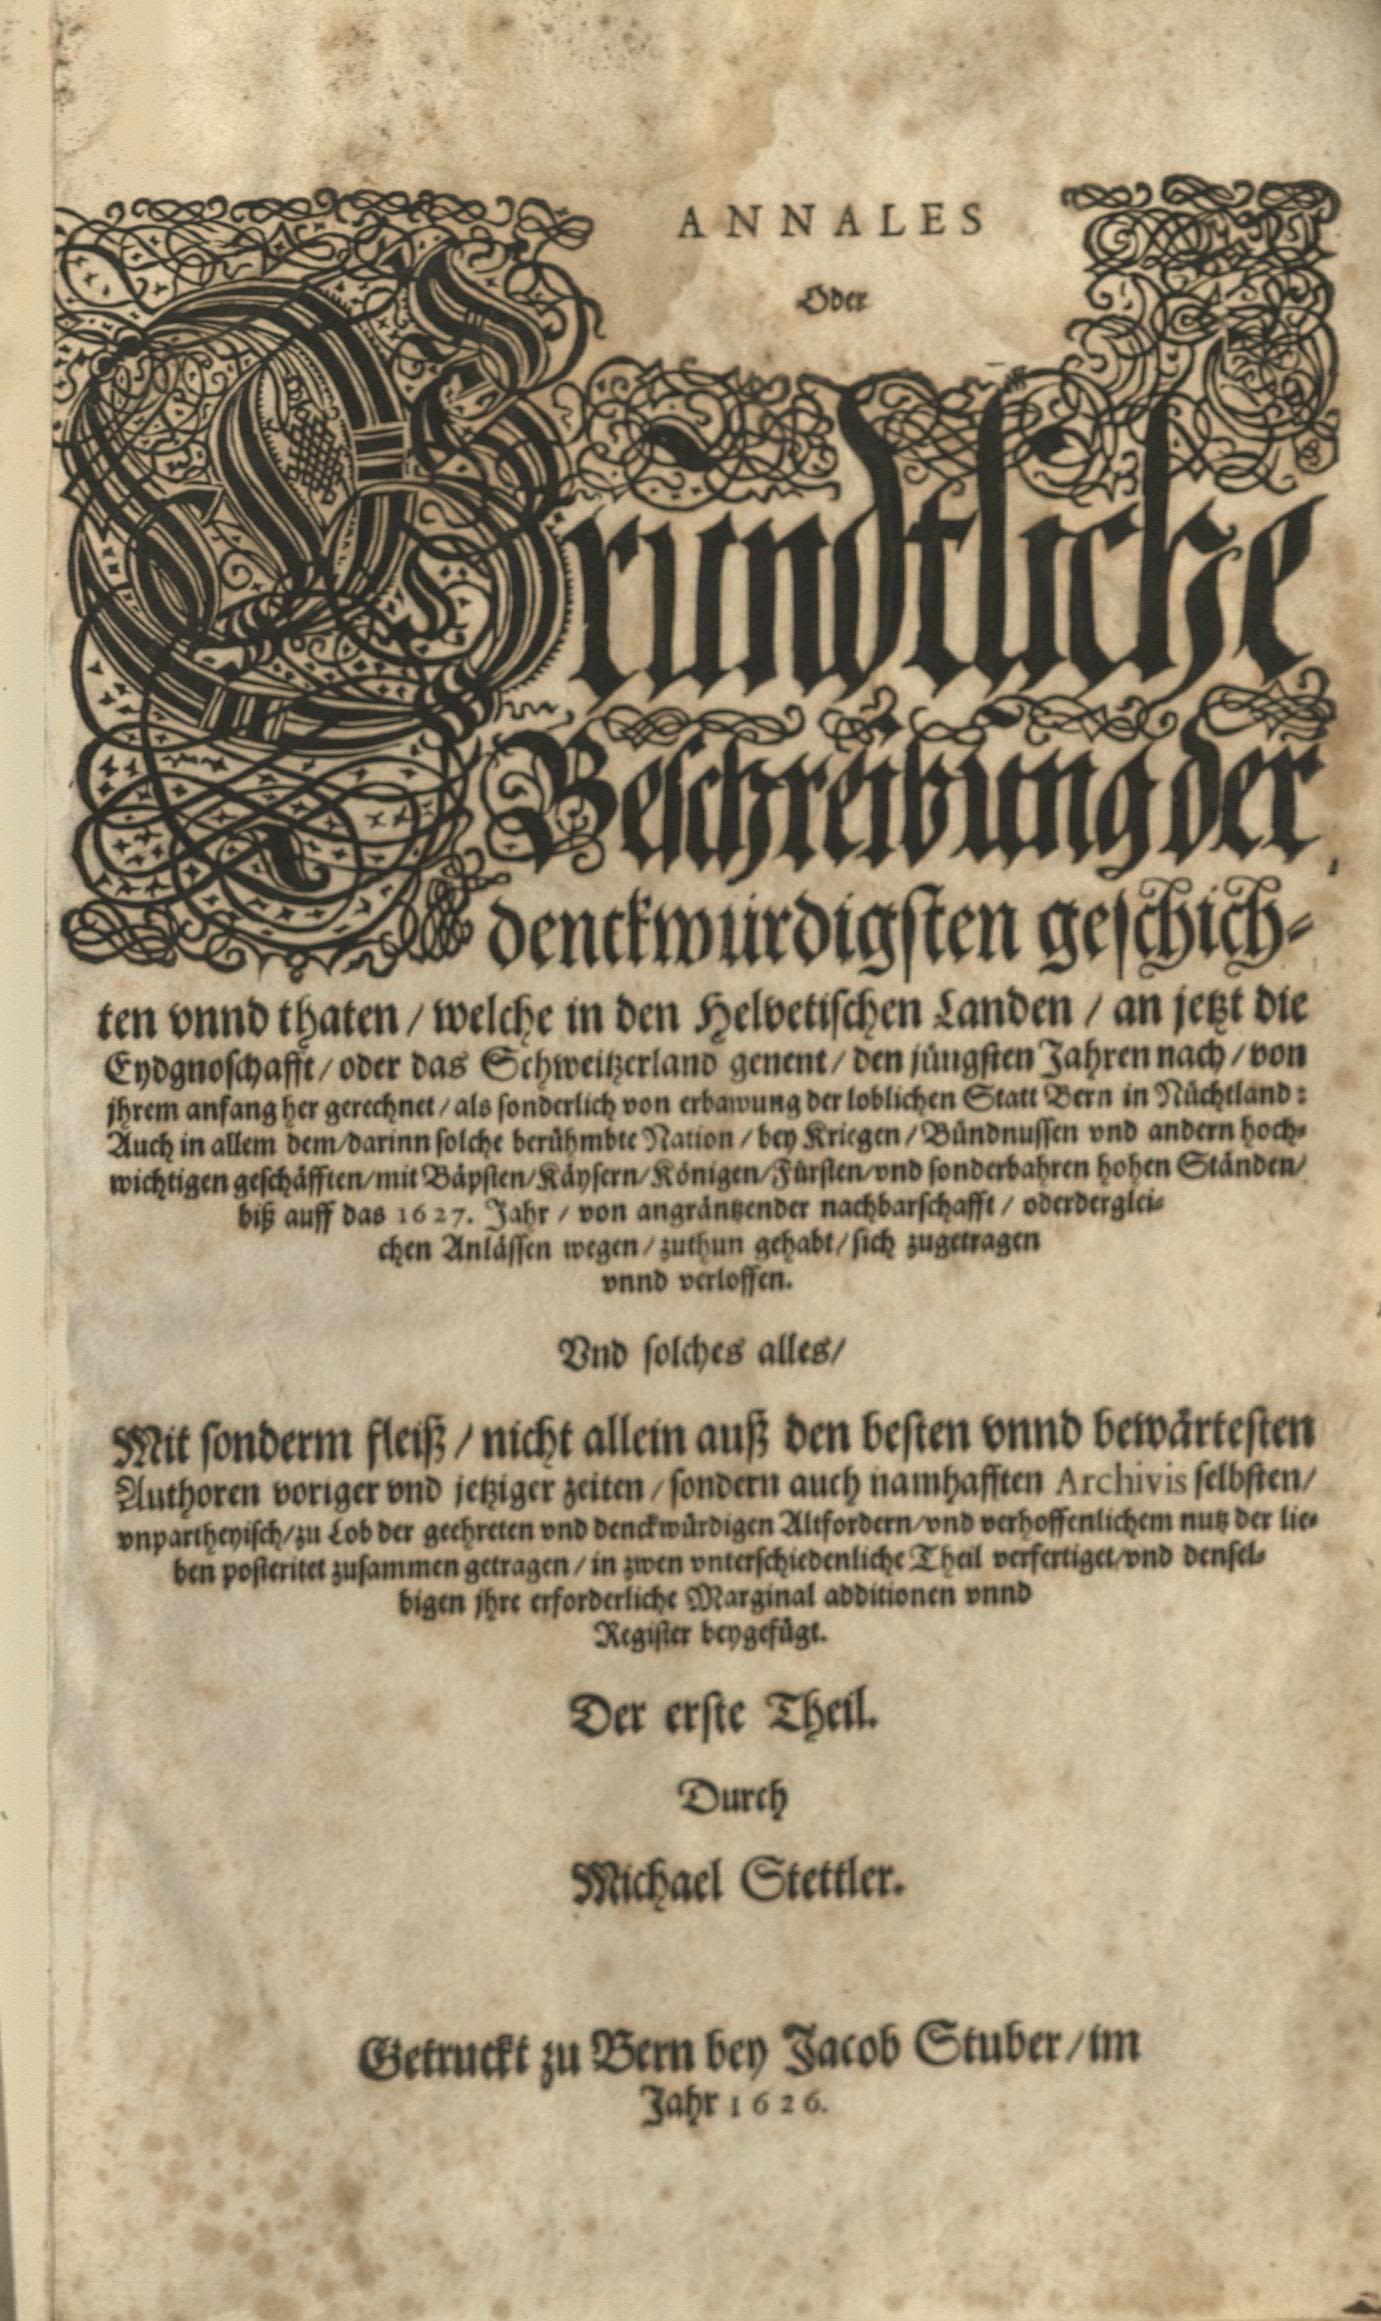 ANNALES
Oder
Gründtliche
Beschreibung der
denckwürdigsten geschich-
ten vnnd thaten / welche in den Helvetischen Landen / an jetzt die
Eydgnoschafft / oder das Schweitzerland genent / den jüngsten Jahren nach / von
jhrem anfang her gerechnet / als sonderlich von erbawung der loblichen Statt Bern in Nüchtland:
Auch in allem dem / darinn solche berühmbte Nation / bey Kriegen / Bündnussen vnd andern hoch-
wichtigen geschäfften / mit Bäpsten / Käysern / Königen / Fürsten / vnd sonderbahren hohen Ständen /
biß auff das 1627. Jahr / von angräntzender nachbarschafft / oder derglei-
chen Anlässen wegen / zuthun gehabt / sich zugetragen
vnnd verloffen.
Vnd solches alles /
Mit sonderm fleiß / nicht allein auß den besten vnnd bewärtesten
Authoren voriger vnd jetziger zeiten / sondern auch namhafften Archivis selbsten /
vnpartheyisch / zu Lob der geehreten vnd denckwürdigen Altfordern / vnd verhoffenlichem nutz der lie-
ben posteritet zusammen getragen / in zwen vnterschiedenliche Theil verfertiget / vnd densel-
bigen jhre erforderliche Marginal additionen vnnd
Register beygefügt.
Der erste Theil.
Durch
Michael Stettler.
Getruckt zu Bern bey Jacob Stuber / im
Jahr 1626.